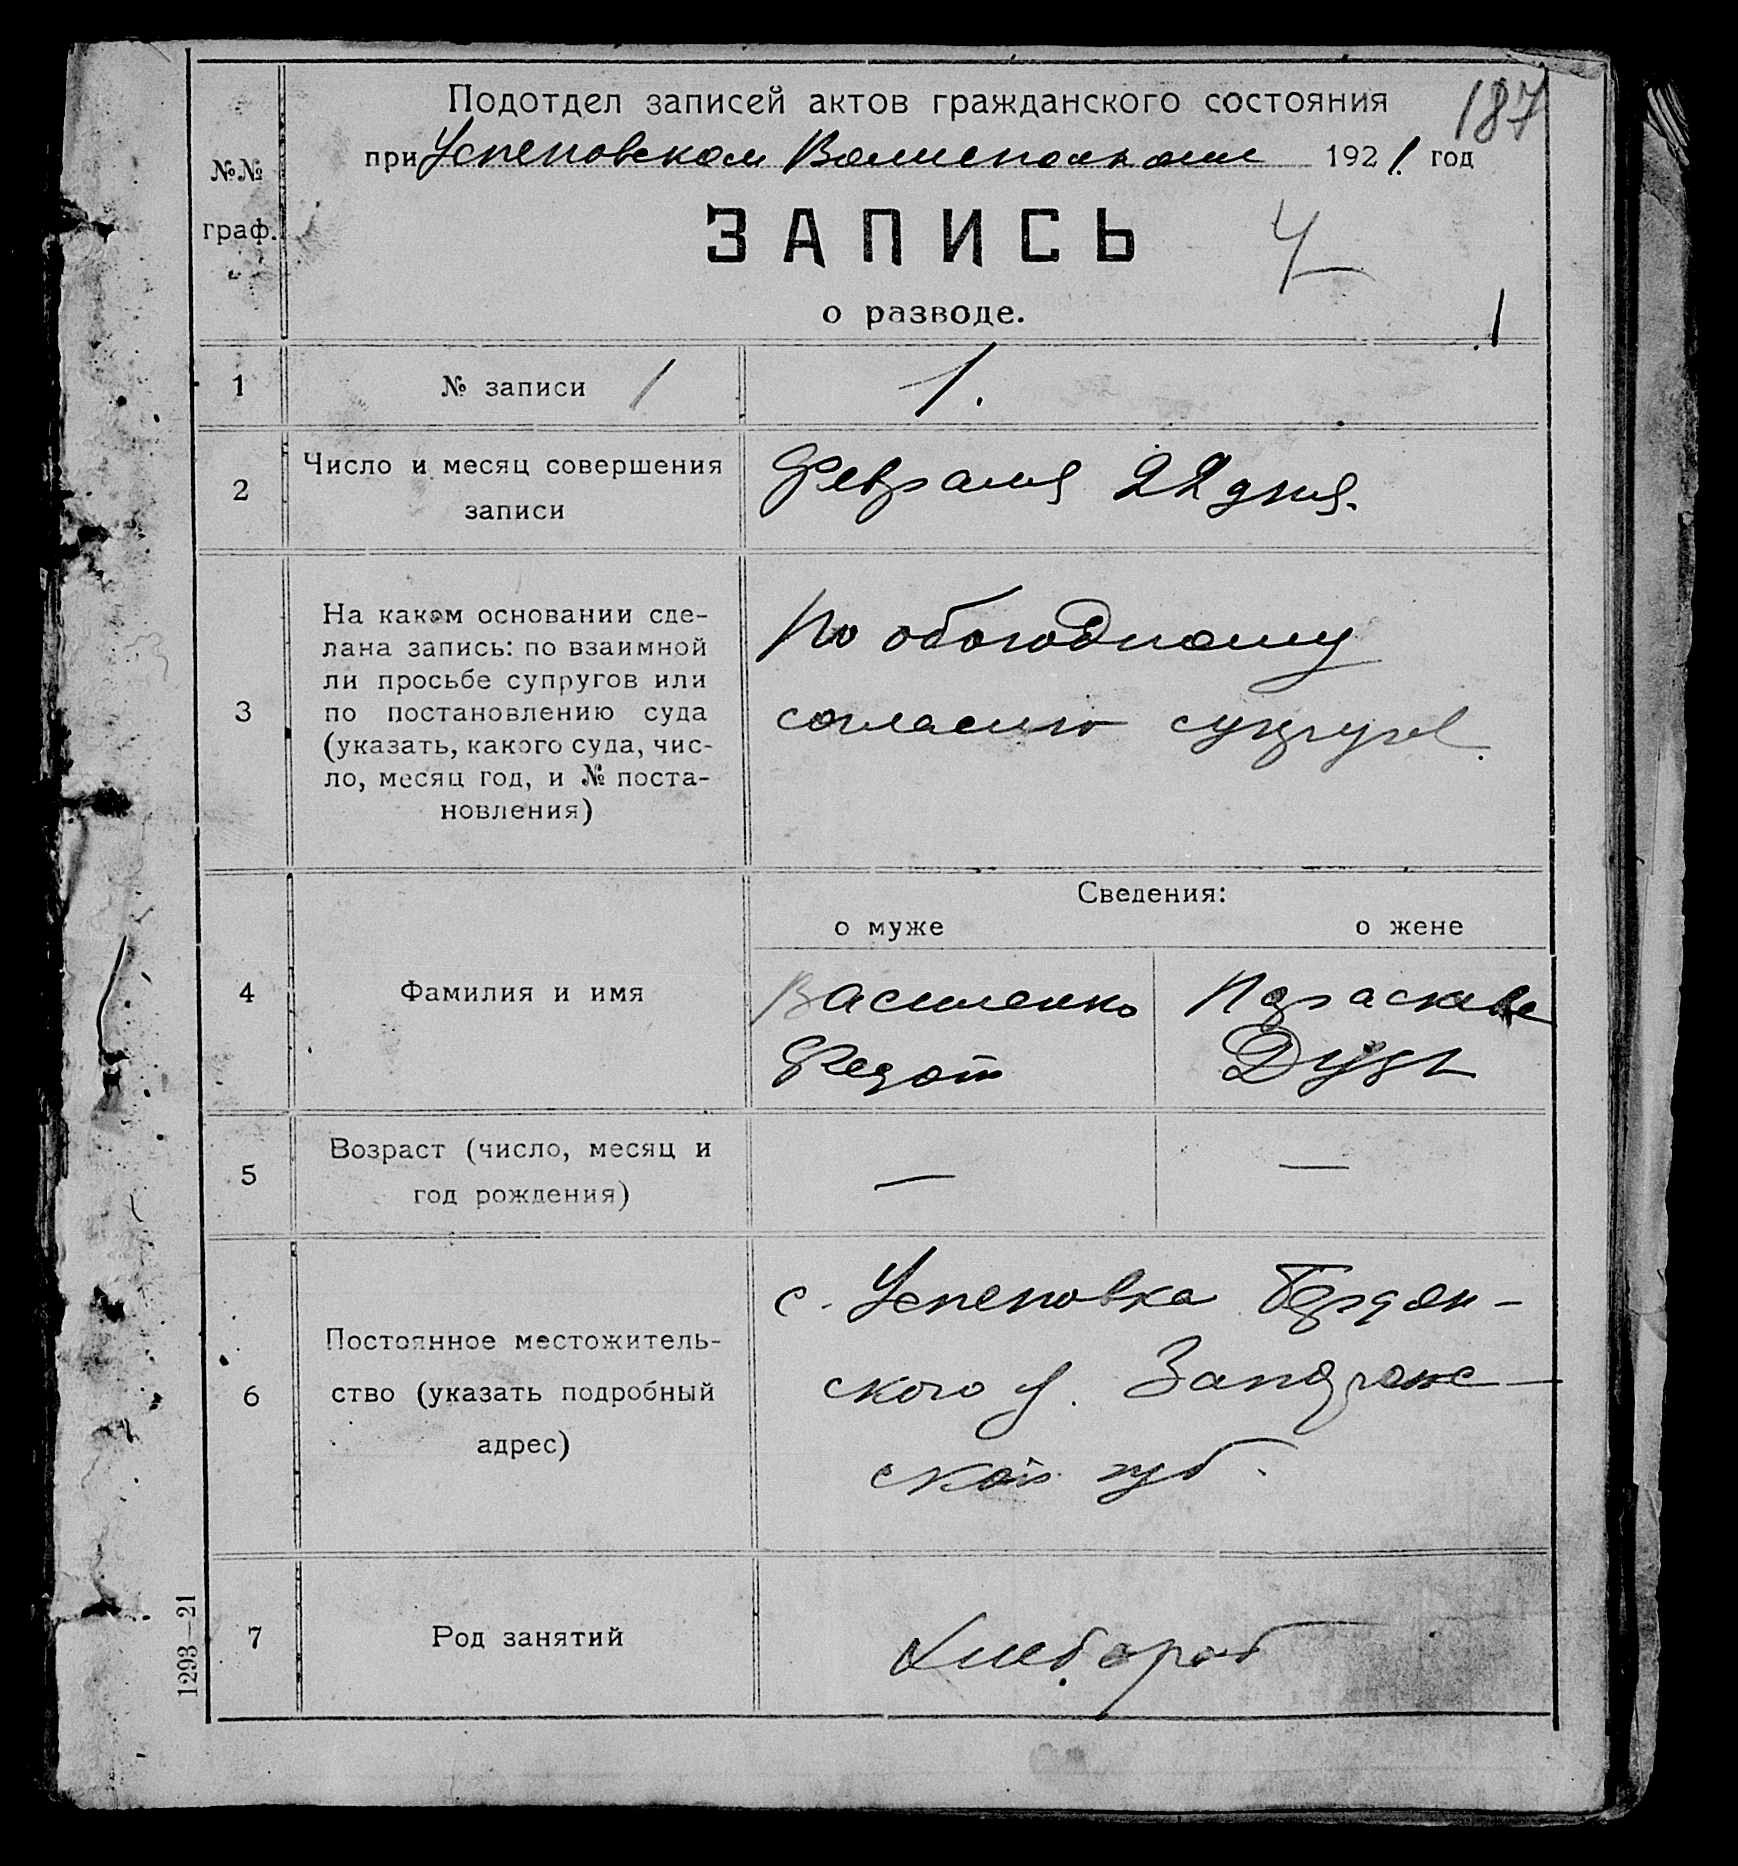 Подотдел записей актов гражданского состояния
187
при Успеновском Волисполкоме 1921. год
№№
граф.
ЗАПИСЬ
4
о разводе.
1
1 № записи 1 1.
2 Число и месяц совершения
записи
Февраля 22 дня.
3 На каком основании сде-
лана запись: по взаимной
ли просьбе супругов или
по постановлению суда
(указать, какого суда, чис-
ло, месяц год, и № поста-
новления)
По обоюдному
согласию супругов.
Сведения:
о муже о жене
4 Фамилия и имя
Василенко Параскева
Федот Дудь
5 Возраст (число, месяц и
год рождения)
— —
6 Постоянное местожитель-
ство (указать подробный
адрес)
с. Успеновка Бердян-
ского у. Запорожс-
ской губ.
7 Род занятий
Хлебороб
1293—21